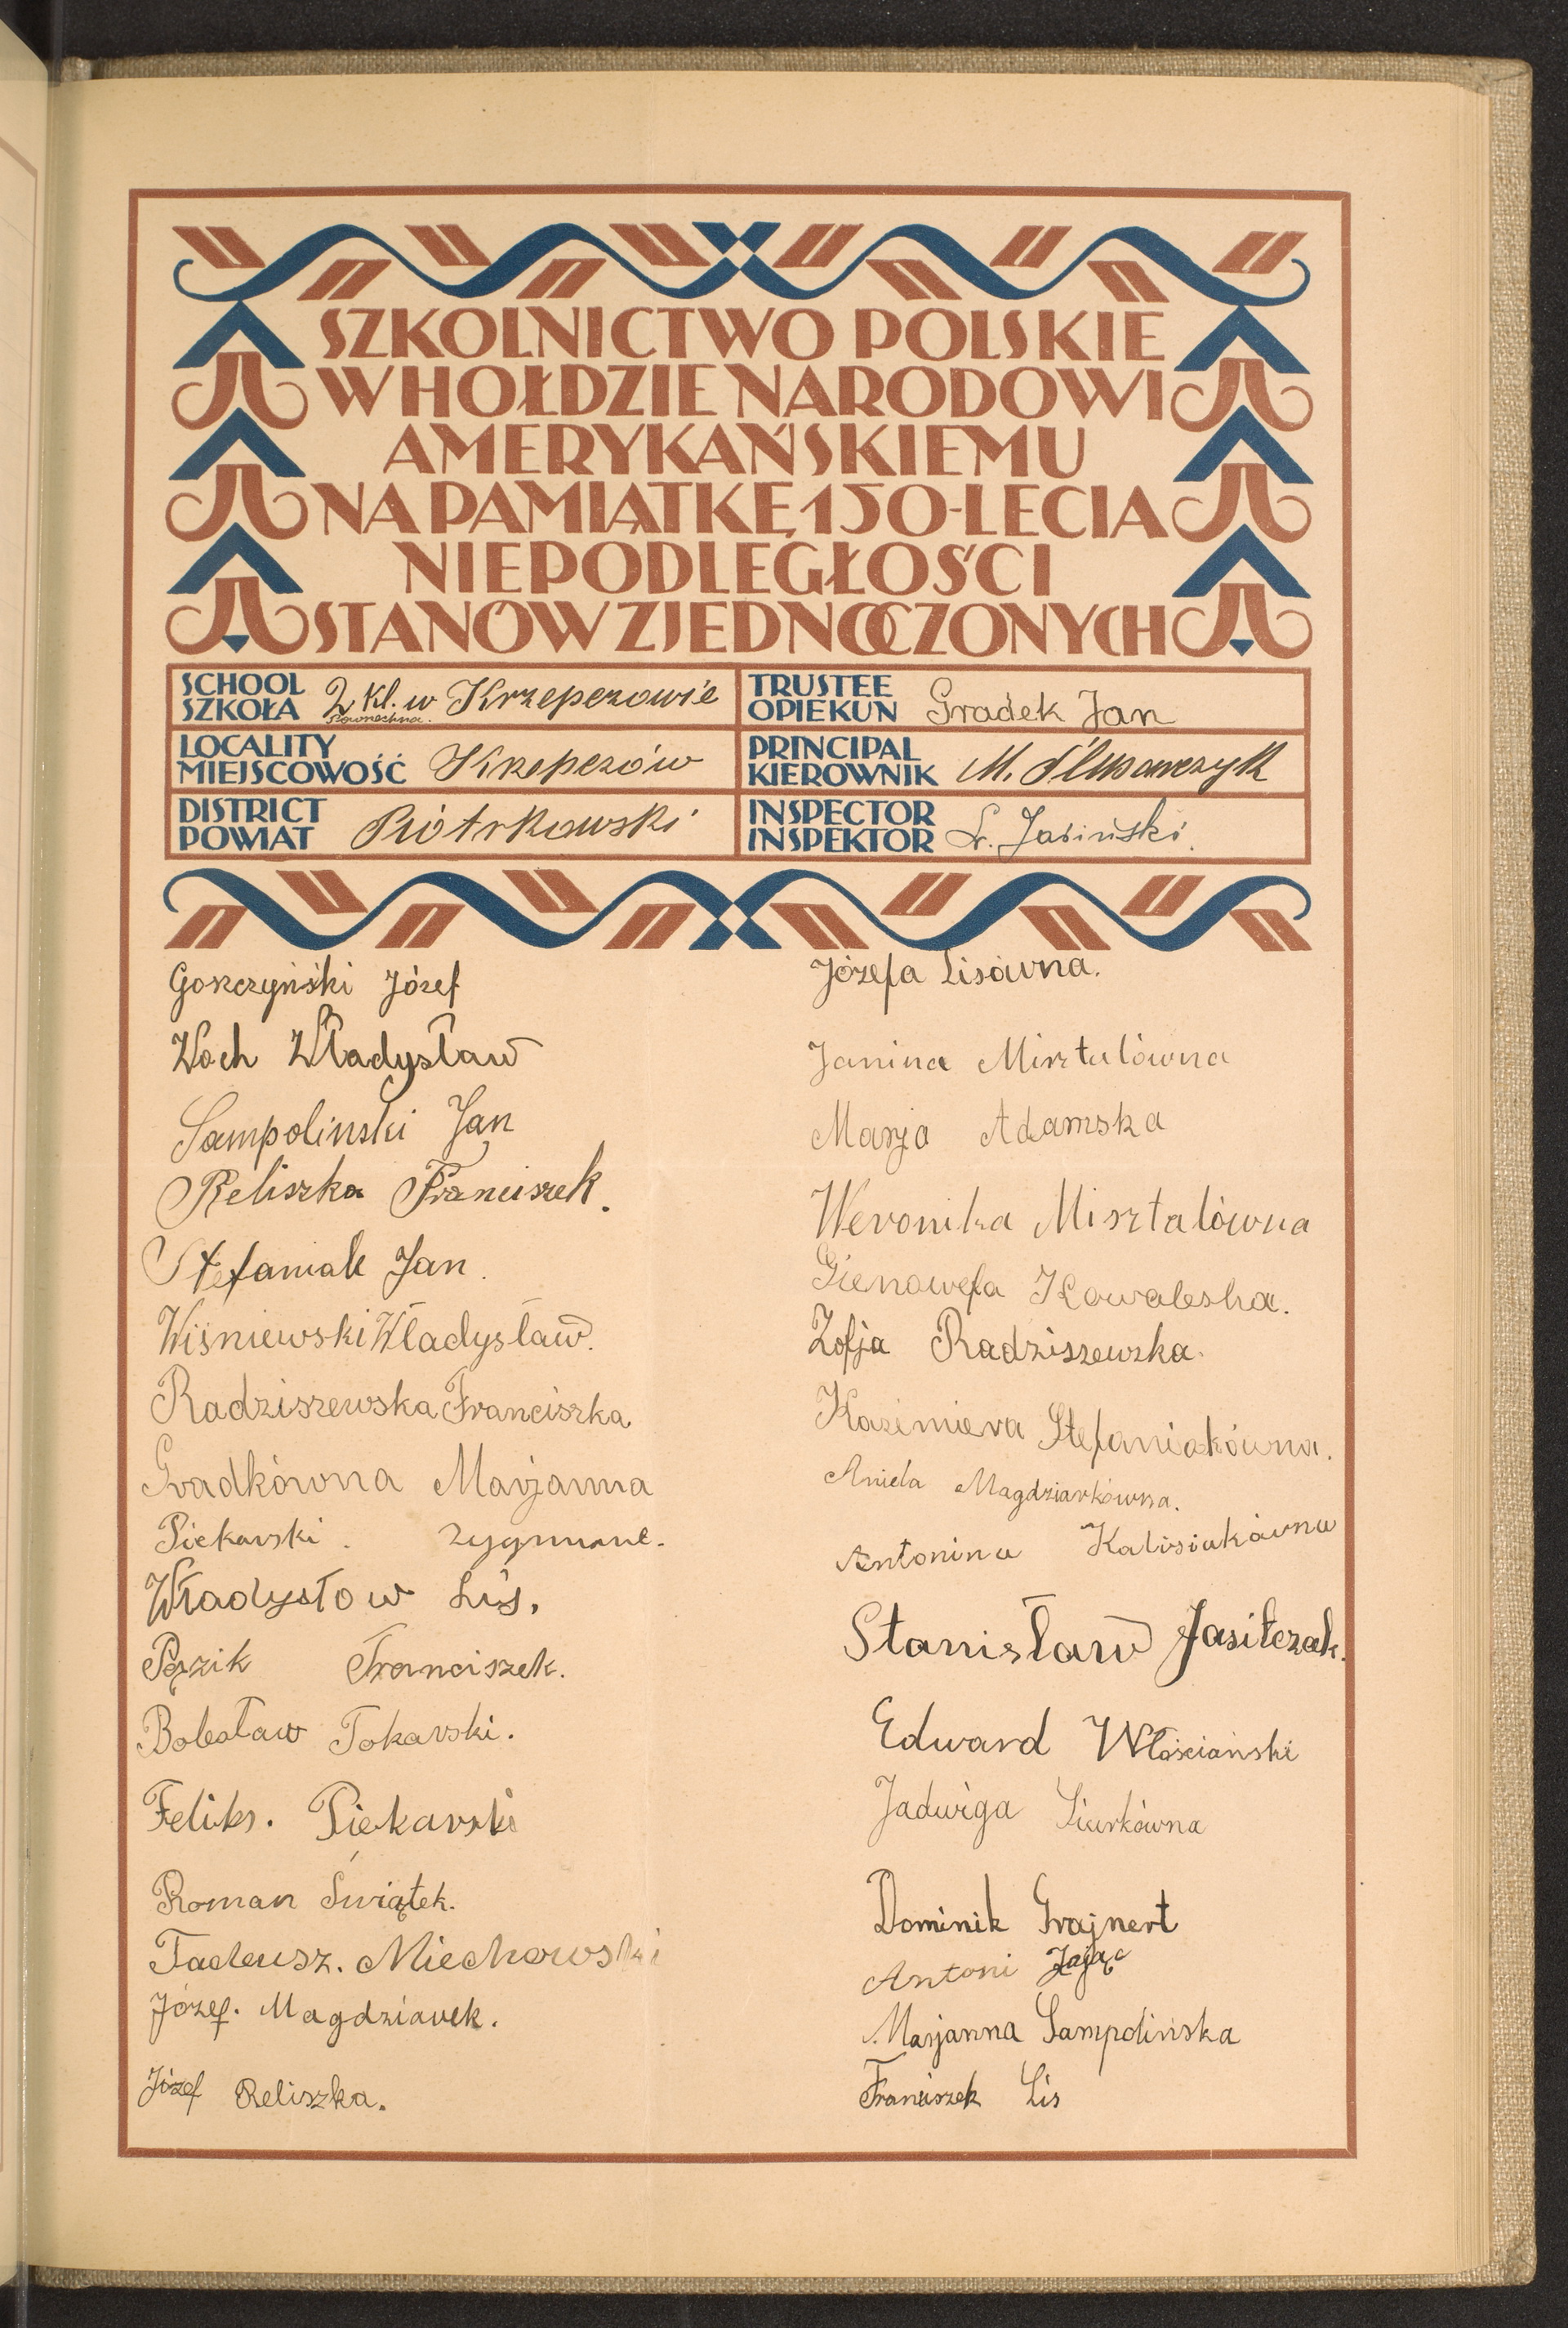 SZKOLNICTWO POLSKIE
W HOŁDZIE NARODOWI
AMERYKAŃSKIEMU
NA PAMIĄTKĘ 150-LECIA
NIEPODLEGŁOŚCI
STANÓW ZJEDNOCZONYCH
SCHOOL
SZKOŁA
2 kl. w Krzepczowie
Powszechna.
TRUSTEE
OPIEKUN
Gradek Jan
LOCALITY
MIEJSCOWOŚĆ
Krzepczów
PRINCIPAL
KIEROWNIK
M. Ślusarczyk
DISTRICT
POWIAT
Piotrkowski
INSPECTOR
INSPEKTOR
Jasiński.
Goszczyński Józef
Woch Władysław
Sampolinski Jan
Reliszka Franciszek.
Stefaniak Jan.
Wiśniewski Władysław.
Radziszewska Franciszka
Gradkówna Marjanna
Piekarski. Zygmunt.
Władysłow Lis.
Pązik Franciszek.
Bolesław Tokarski.
Feliks. Piekarski
Roman Świątek.
Tadeusz. Miechowski
Józef. Magdziarek.
Józef Reliszka.
Józefa Lisówna.
Janina Misztalówna
Marja Adamska
Weronika Misztalówna
Gienowefa Kowaleska.
Zofja Radziszewska.
Kazimiera Stefaniakówna.
Aniela Magdziarkówna.
Antonina Kalisiakówna
Stanisław Jasiłczak.
Edward Włościański
Jadwiga Siurkówna
Dominik Grajnert
Antoni Zając
Marjanna Sampolińska
Franciszek Lis